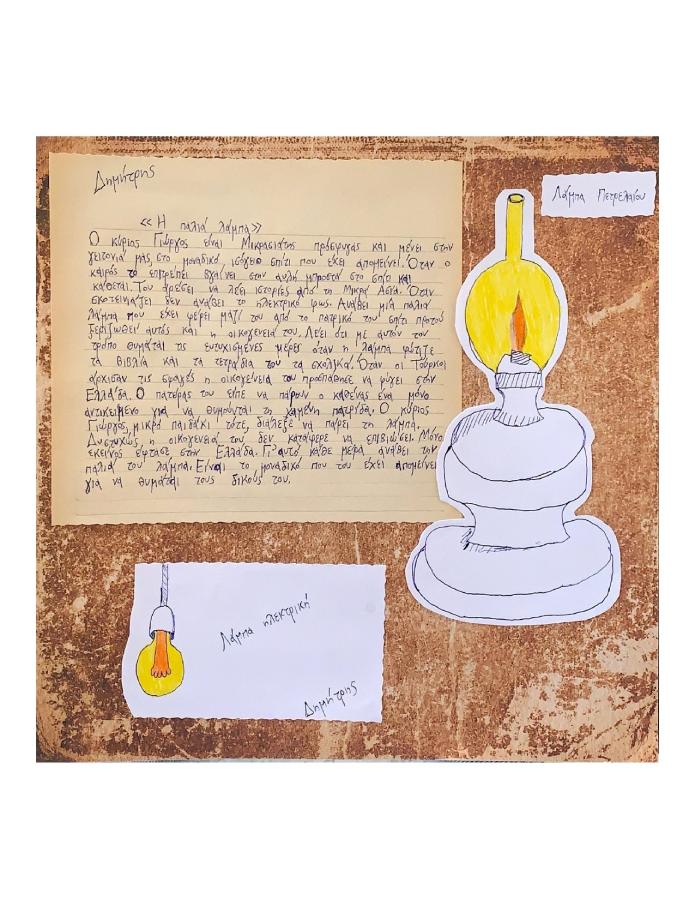 Δημήτρης
<< Η παλιά λάμπα>>
Ο κύριος Γιώργος είναι Μικρασιάτης πρόσφυγας και μένει στην
γειτονιά μας, στο μοναδικό, ισόγειο σπίτι που έχει απομείνει. Όταν ο
καιρός το επιτρέπει βγαίνει στην αυλή μπροστά στο σπίτι και
κάθεται. Του αρέσει να λέει ιστορίες από τη Μικρά Ασία. Όταν
σκοτεινιάζει δεν ανάβει το ηλεκτρικό φως. Ανάβει μία παλιά
λάμπα που έχει φέρει μαζί του από το πατρικό του σπίτι προτού
ξεριζωθεί αυτός και η οικογένειά του. Λέει ότι με αυτόν τον
τρόπο θυμάται τις ευτυχισμένες μέρες όταν η λάμπα φώτιζε
τα βιβλία και τα τετράδιά του τα σχολικά. Όταν οι Τούρκοι
άρχισαν τις σφαγές η οικογένειά του προσπάθησε να φύγει στην
Ελλάδα. Ο πατέρας του είπε να πάρουν ο καθένας ένα μόνο
αντικείμενο για να θυμούνται τη χαμένη πατρίδα. Ο κύριος
Γιώργος, μικρό παιδάκι τότε, διάλεξε να πάρει τη λάμπα.
Δυστυχώς η οικογένειά του δεν κατάφερε να επιβιώσει. Μόνο
εκείνος έφτασε στην Ελλάδα. Γι'αυτό κάθε μέρα ανάβει την
παλιά του λάμπα. Είναι το μοναδικό που του έχει απομείνει
για να θυμάται τους δικούς του.
Λάμπα Πετρελαίου
Λάμπα ηλεκτρική
Δημήτρης